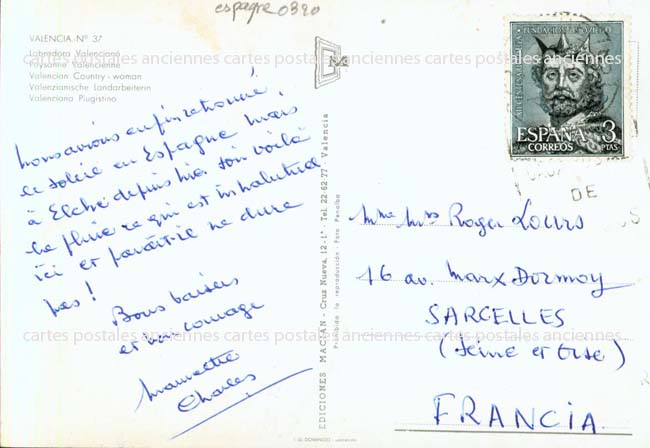 espagne 0390
VALENCIA - Nº 37
Labradora Valenciana
Paysanne Valencienne
Valencian Country - woman
Valenzianische Landarbeiterin
Valenciana Plugistino
nous avions enfin retrouvé
le soleil en Espagne mais
à Elche depuis hier soir voilà
la pluie ce qui est inhabituel
ici et paraît-il ne dure
pas !
Bons baisers
et bon courage
Mamette
Charles
EDICIONES MACIAN - Cruz Nueva, 12-1º - Tel. 22-62-77 - Valencia
Prohibida la reproducción - Foto Penalba
ESPAÑA
CORREOS
3
PTAS
DE
Roger Louis
16 av. Marx Dormoy
SARCELLES
(Seine et Oise)
FRANCIA
cartes postales anciennes cartes postales anciennes cartes postales anciennes
cartes postales anciennes cartes postales anciennes cartes postales anciennes